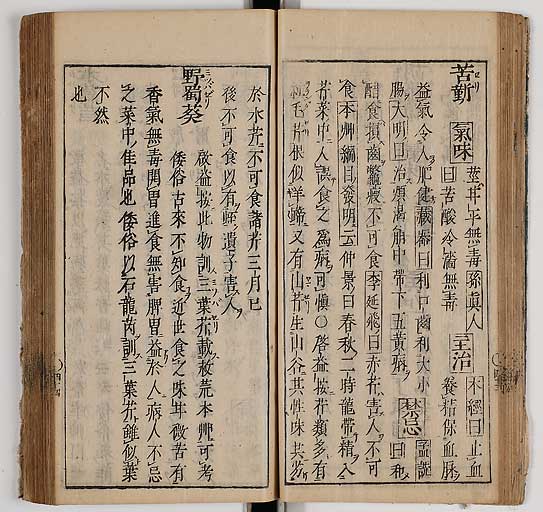 氣味 莖 甘平無毒孫真人曰苦酸冷濇無毒 主治 本經曰止血養精保血脉
益氣令人肥健藏器曰利中齒利大小
腸大明曰治煩渴崩中帶下五黃病 禁忌 孟詵曰和
醋食損齒鱉瘕不可食李延飛曰赤芹害人不可
食本艸綱目發明云仲景曰春秋二時龍帶精入
芹菜中人誤食之爲病可愼〇啓益按芹類多有
毛芹根似洋蹄又有山芹生山谷其性味共劣
於水芹不可食諸芹三月已
後不可食以有蛭遺子害人
野蜀葵 啟益按此物訓三葉芹載救荒本艸可考
倭俗古來不知食近世食之味甘微苦有
香氣無毒開胃進食無害脾胃益於人病人不忌
之菜中佳品也倭俗以石龍芮訓三葉芹雖似葉
不然
也